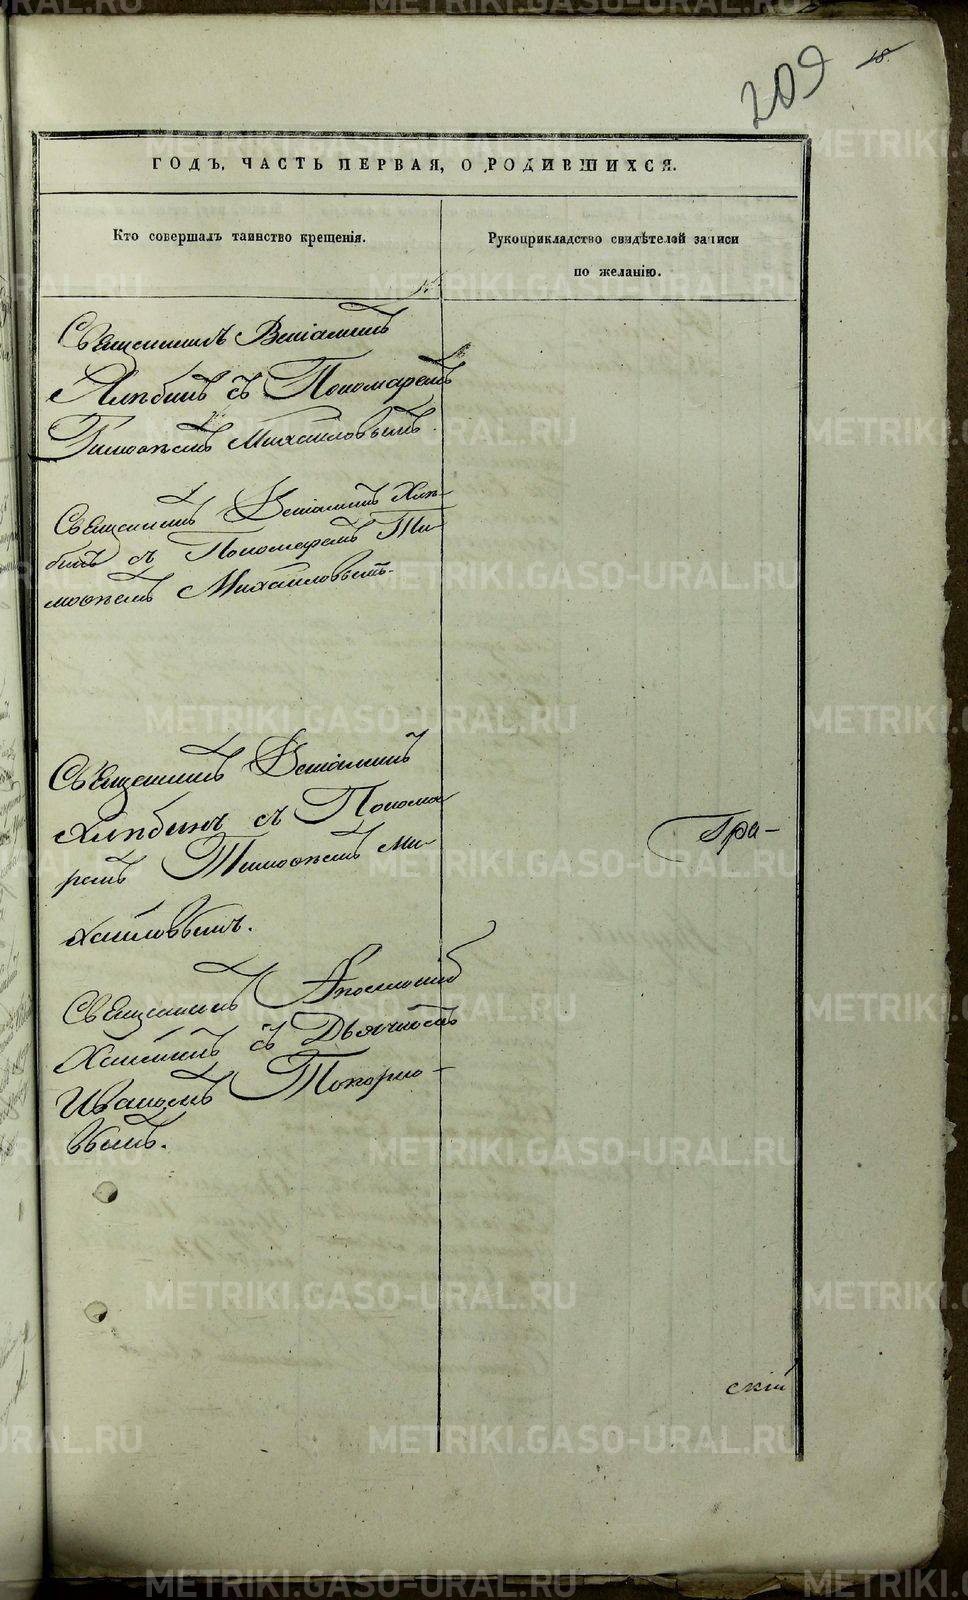 209
18.
ГОДЪ, ЧАСТЬ ПЕРВАЯ, О РОДИВШИХСЯ.
Кто совершалъ таинство крещенія.
Рукоприкладство свидѣтелей записи
по желанію.
Священникъ Веніаминъ
Хлѣбинъ съ Пономаремъ
Тимоѳеемъ Михаиловымъ.
Священникъ Веніаминъ Хлѣ-
бинъ съ Пономаремъ Ти-
моѳеемъ Михаиловымъ.
Священникъ Веніаминъ
Хлѣбинъ съ Понома-
ремъ Тимоѳеемъ Ми-
хаиловымъ.
Гра-
Священникъ
съ Дьячкомъ
Иваномъ Топорко-
вымъ.
скій
METRIKI.GASO-URAL.RU